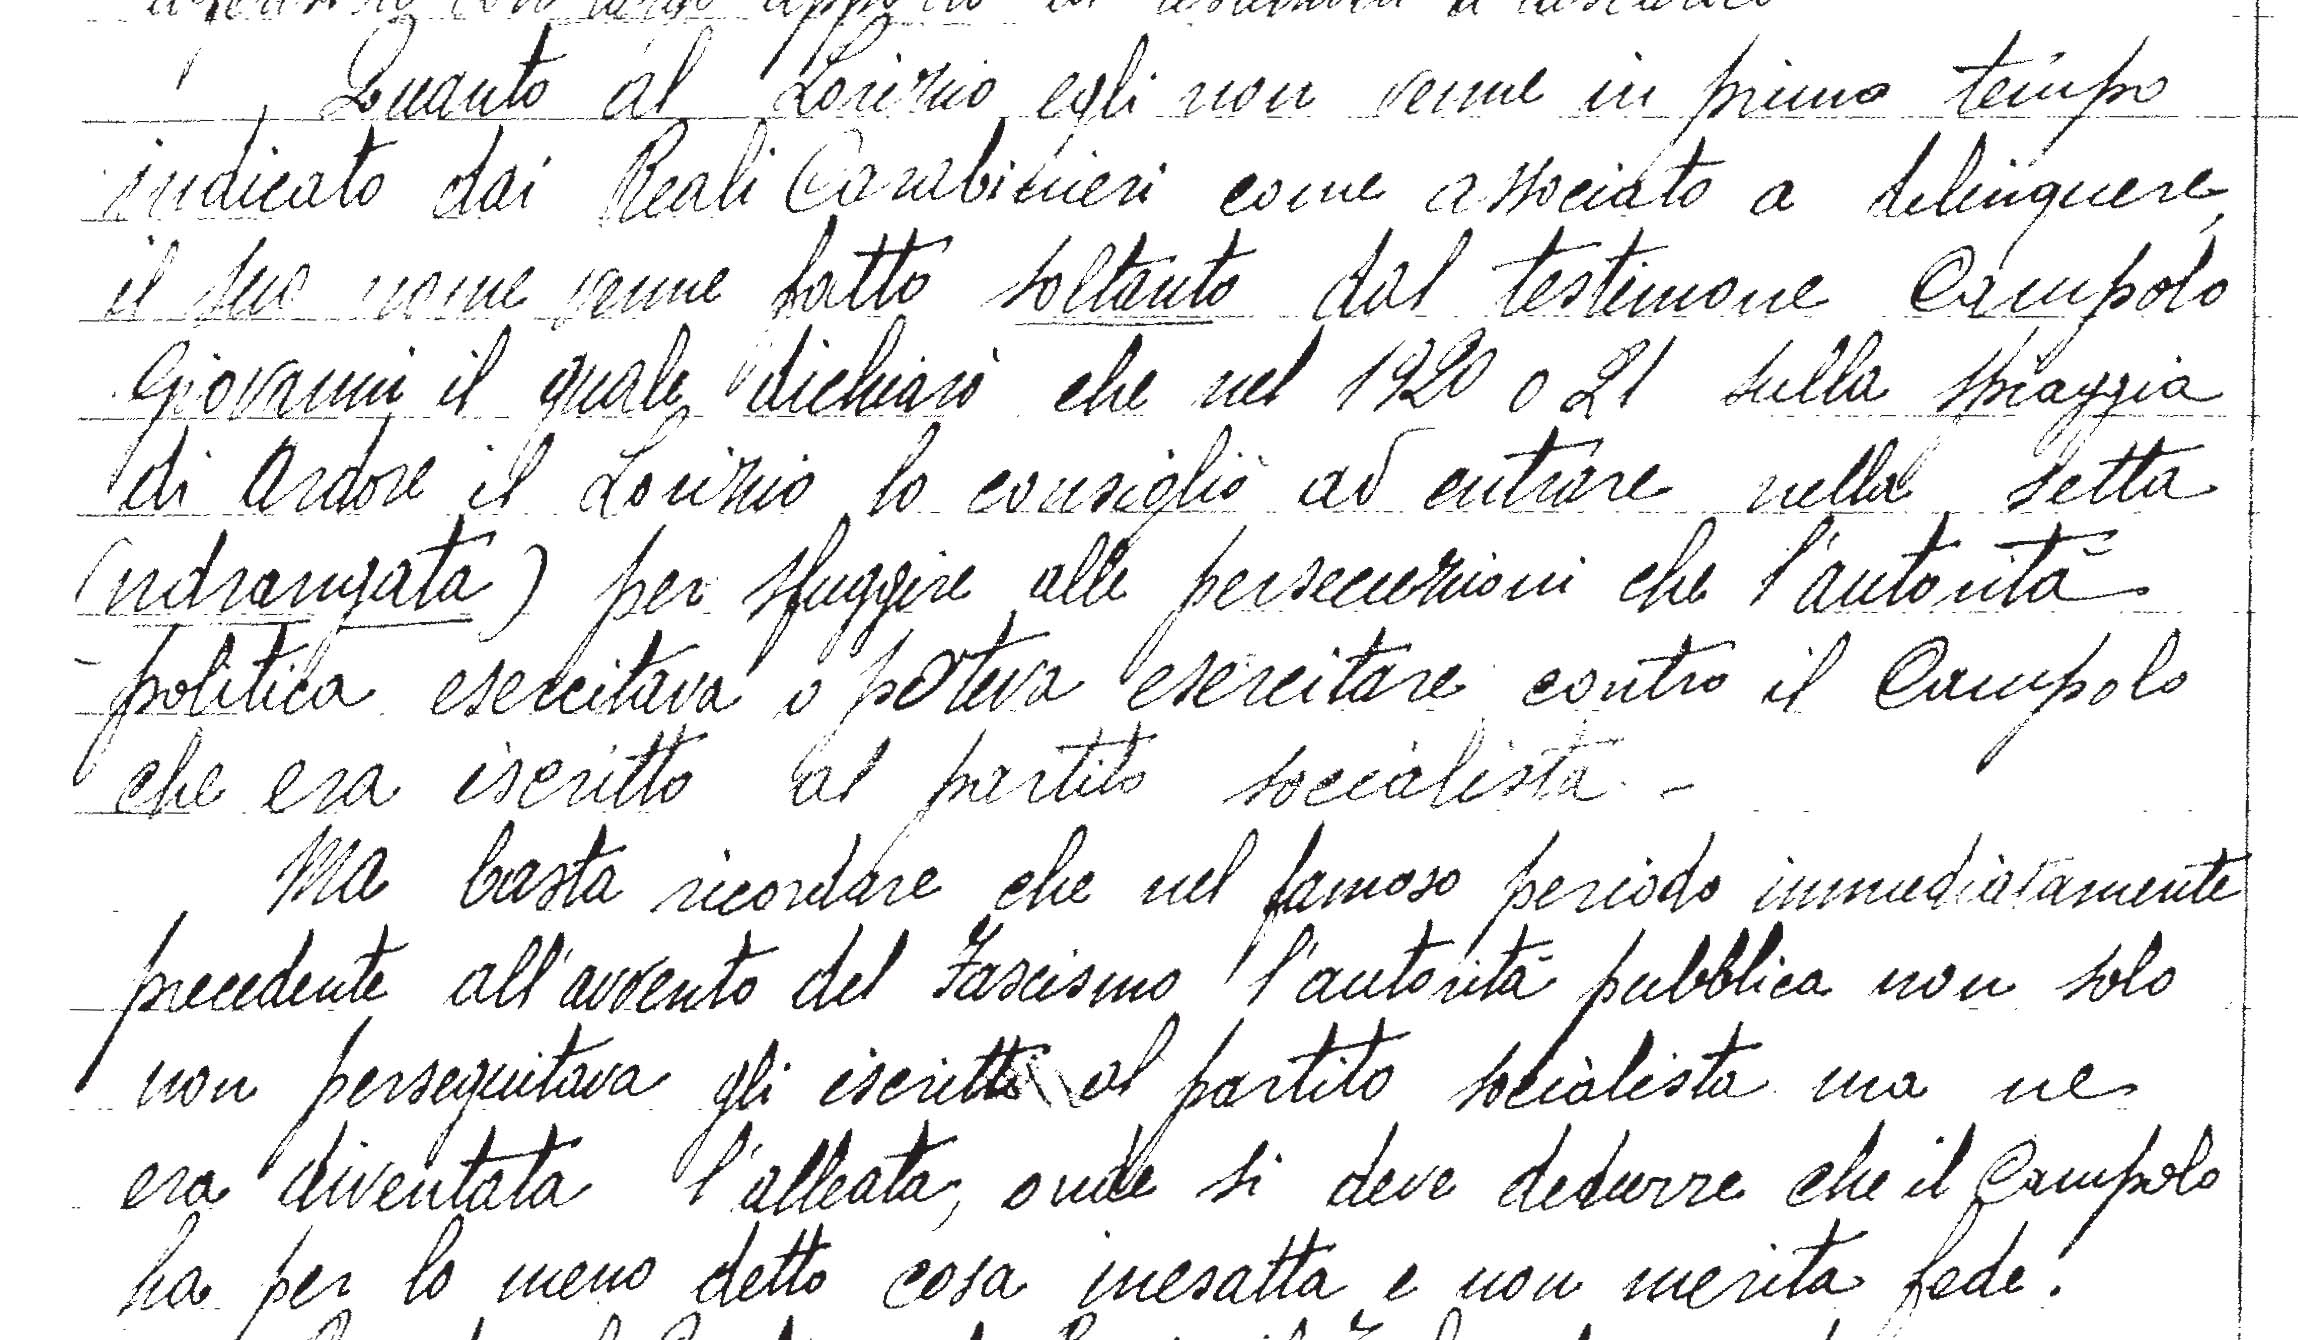 Quanto al Lorizio egli non venne in primo tempo
indicato dai Reali Carabinieri come associato a delinquere,
il suo nome venne fatto soltanto dal testimone Campolo
Giovanni il quale dichiarò che nel 1920 o 21 sulla spiaggia
di Ardore il Lorizio lo consigliò ad entrare nella setta
(ndrangata) per sfuggire alle persecuzioni che l'autorità
politica esercitava o poteva esercitare contro il Campolo
che era iscritto al partito socialista. -
Ma basta ricordare che nel famoso periodo immediatamente
precedente all'avvento del Fascismo l'autorità pubblica non solo
non perseguitava gli iscritti al partito socialista ma ne
era diventata l'alleata, onde si deve dedurre che il Campolo
ha per lo meno detto cosa inesatta e non merita fede.